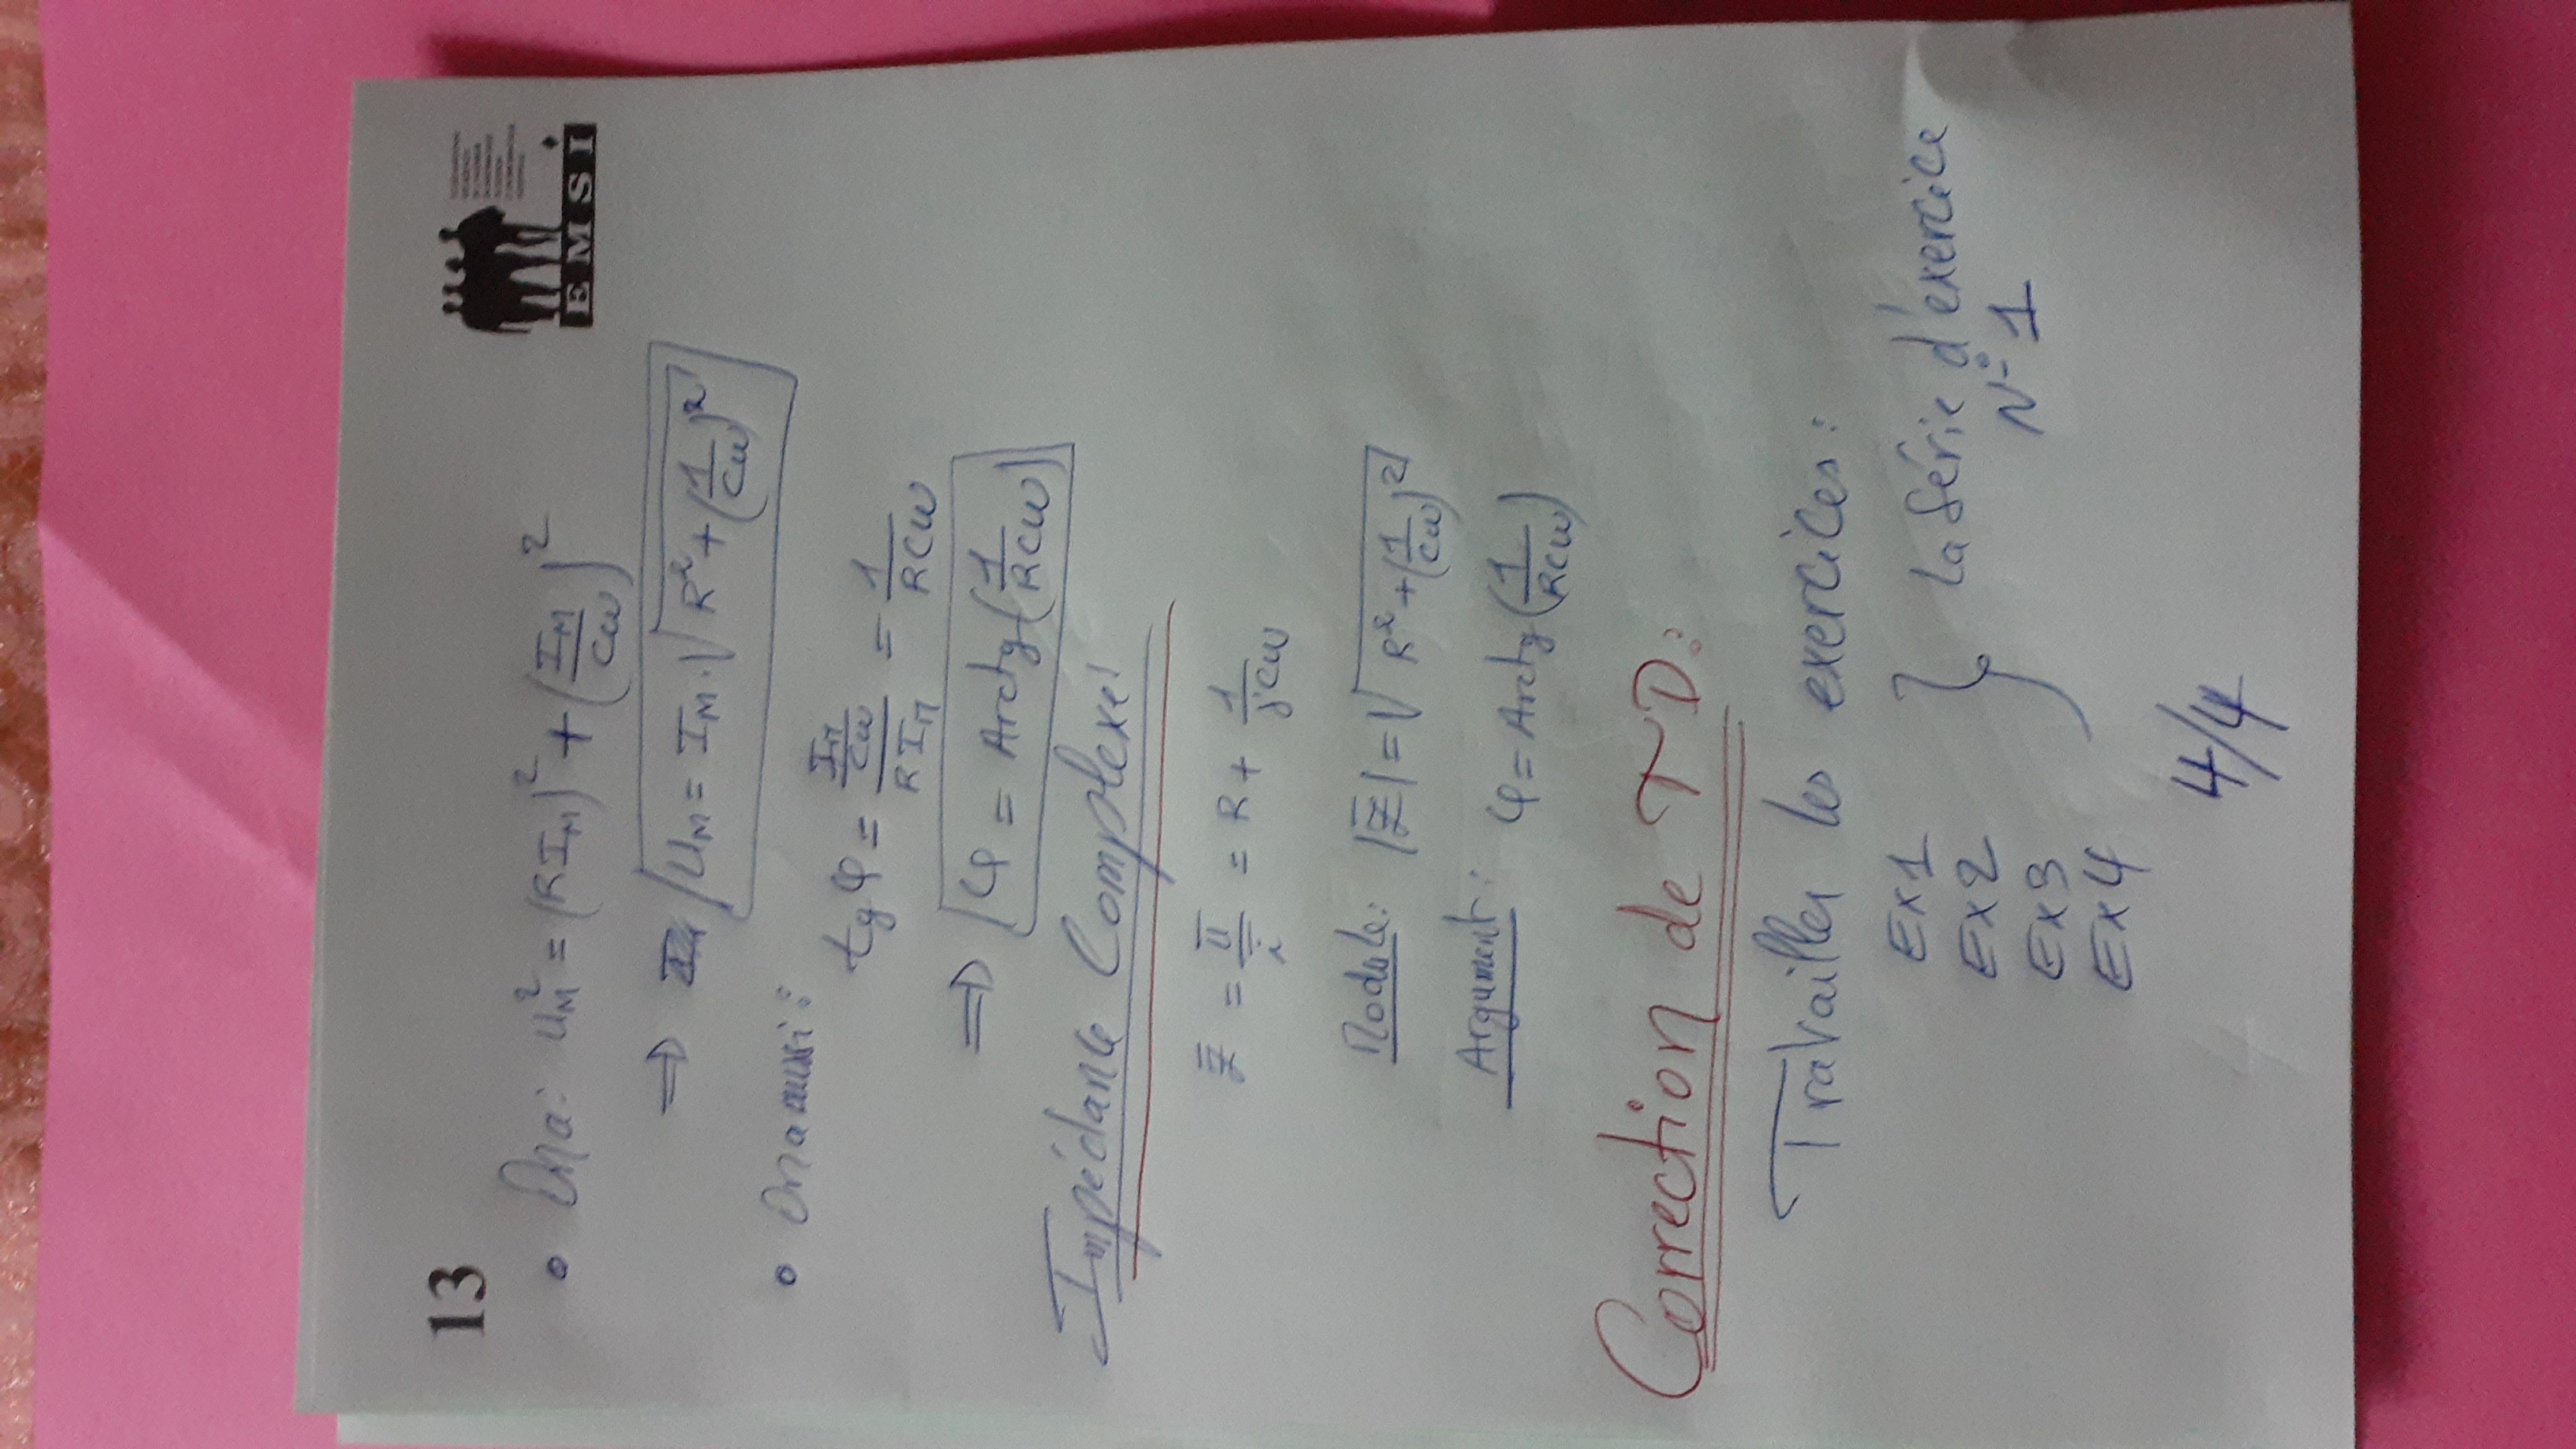 13
• On a: U_M² = (R I_M)² + (I_M/Cω)²
⇒ U_M = I_M . √(R² + (1/Cω)²)
• On a aussi :
tg φ = (I_M/Cω)/(R I_M) = 1/RCω
⇒ φ = Arctg(1/RCω)
Impédance Complexe:
Z̄ = ū/ī = R + 1/jCω
Module: |Z̄| = √(R² + (1/Cω)²)
Argument: φ = Arctg(1/RCω)
Correction de TD:
Travailler les exercices :
Ex1
Ex2
Ex3
Ex4
La Série d'exercice
N° 1
4/4
EMSI